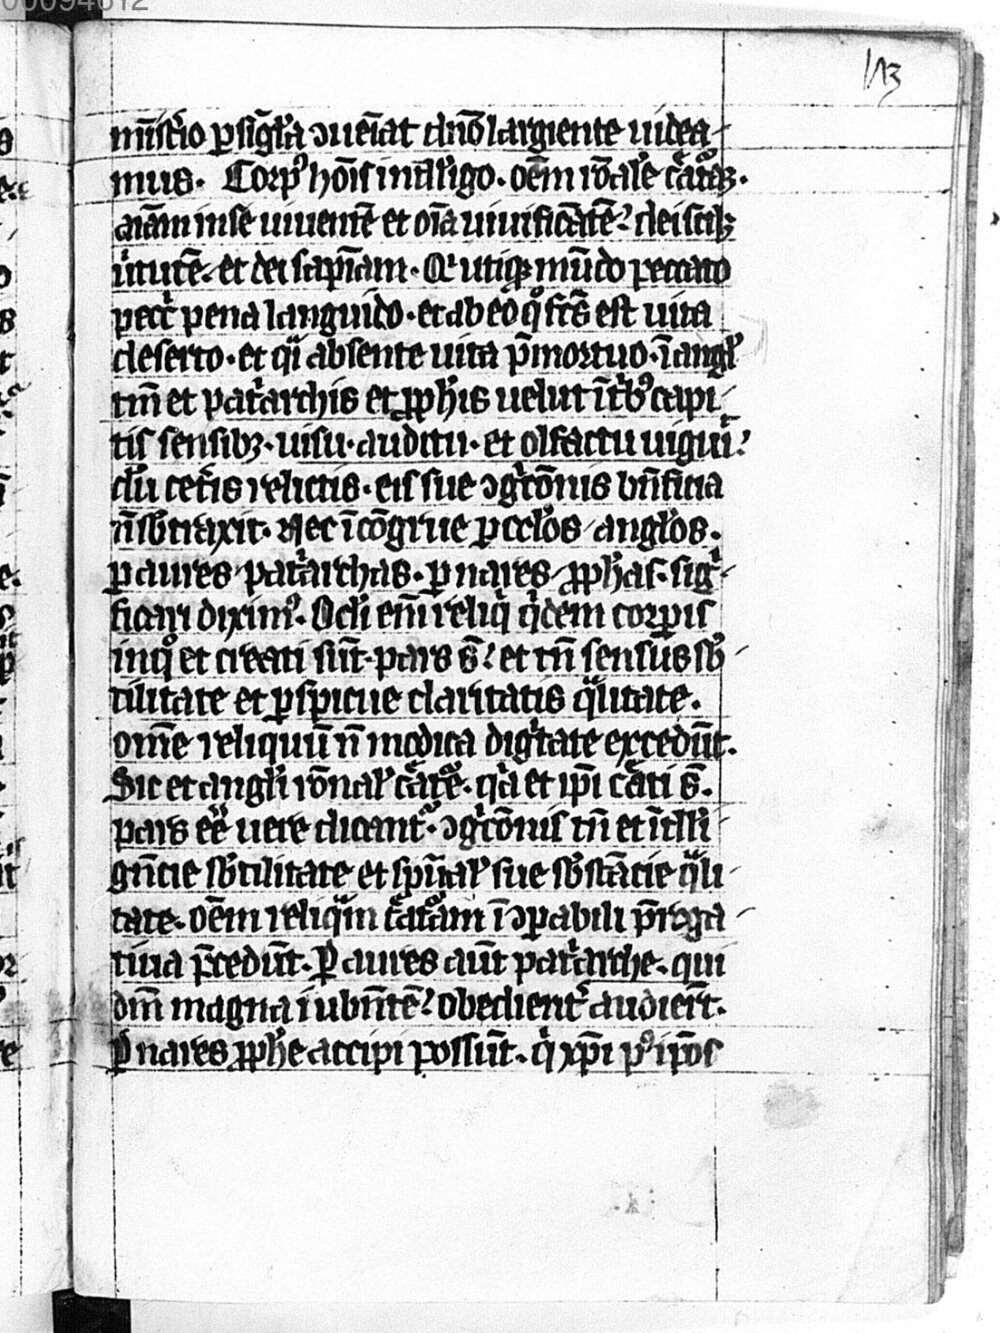 00094612
113
mīst̾io ꝑ sīgl̾a ꝯueīat dn̄o largiente uidea-
mus. Corpꝰ hōīs intll̾igo. oēm rōal̾e c̾atᵃꝫ.
aīam in se uiuentē et oīa uiuificātē? dei scilꝫ
ůtutē. et dei sapīam. Q̾ utiqꝫ mūdo peccato
pecc̾ pena languido. et ab eo qͦ fcs̄ est uita
deserto. et qͥ absente uita p̄mortuo. ī angl̾
tm̄ et pat̾archis et ꝓph̾is uelut ī t̾bꝰ capi-
tis sensibꝫ. uisu. auditu. et olfactu uiguit?
dū cet̾is relictis. eis sue ꝯg̾tōnis bn̄ficia
n̄ sb̾traxit. Nec īcōgrue ꝑ ocl̾os angl̾os.
ꝑ aures pat̾archas. ꝑ nares ꝓph̾as. sig-
ficari diximꝰ. Ocl̾i em̄ reliq̾ q̾dem corpis
inqͦ et creati sūt. pars s̄? et tn̄ sensus sb̾-
tilitate et ꝑspicue claritatis qᵃlitate.
om̄e reliquū n̄ modica dig̾tate excedūt.
Sic et angl̾i rōnal̾ c̾atᵉ. qᵃ et ip̄i c̾ati s̄.
pars eē̾ uere dicant᷑. ꝯg̾tōnis tn̄ et ītll̾i-
gn̄cie sb̾tilitate et sp̄ual̾ sue sb̾stācie qᵃli-
tate. oēm reliqᵃm c̾atᵃam īꝯpabili p̄roga-
tiua p̄cedūt. Ꝑ aures aūt pat̾arche. qui
dm̄ magna iubn̄tē? obedient̾ audier̄t.
Ꝑ nares ꝓph̾e accipi possūt. qͥ xp̄i pꝰ ip̄os